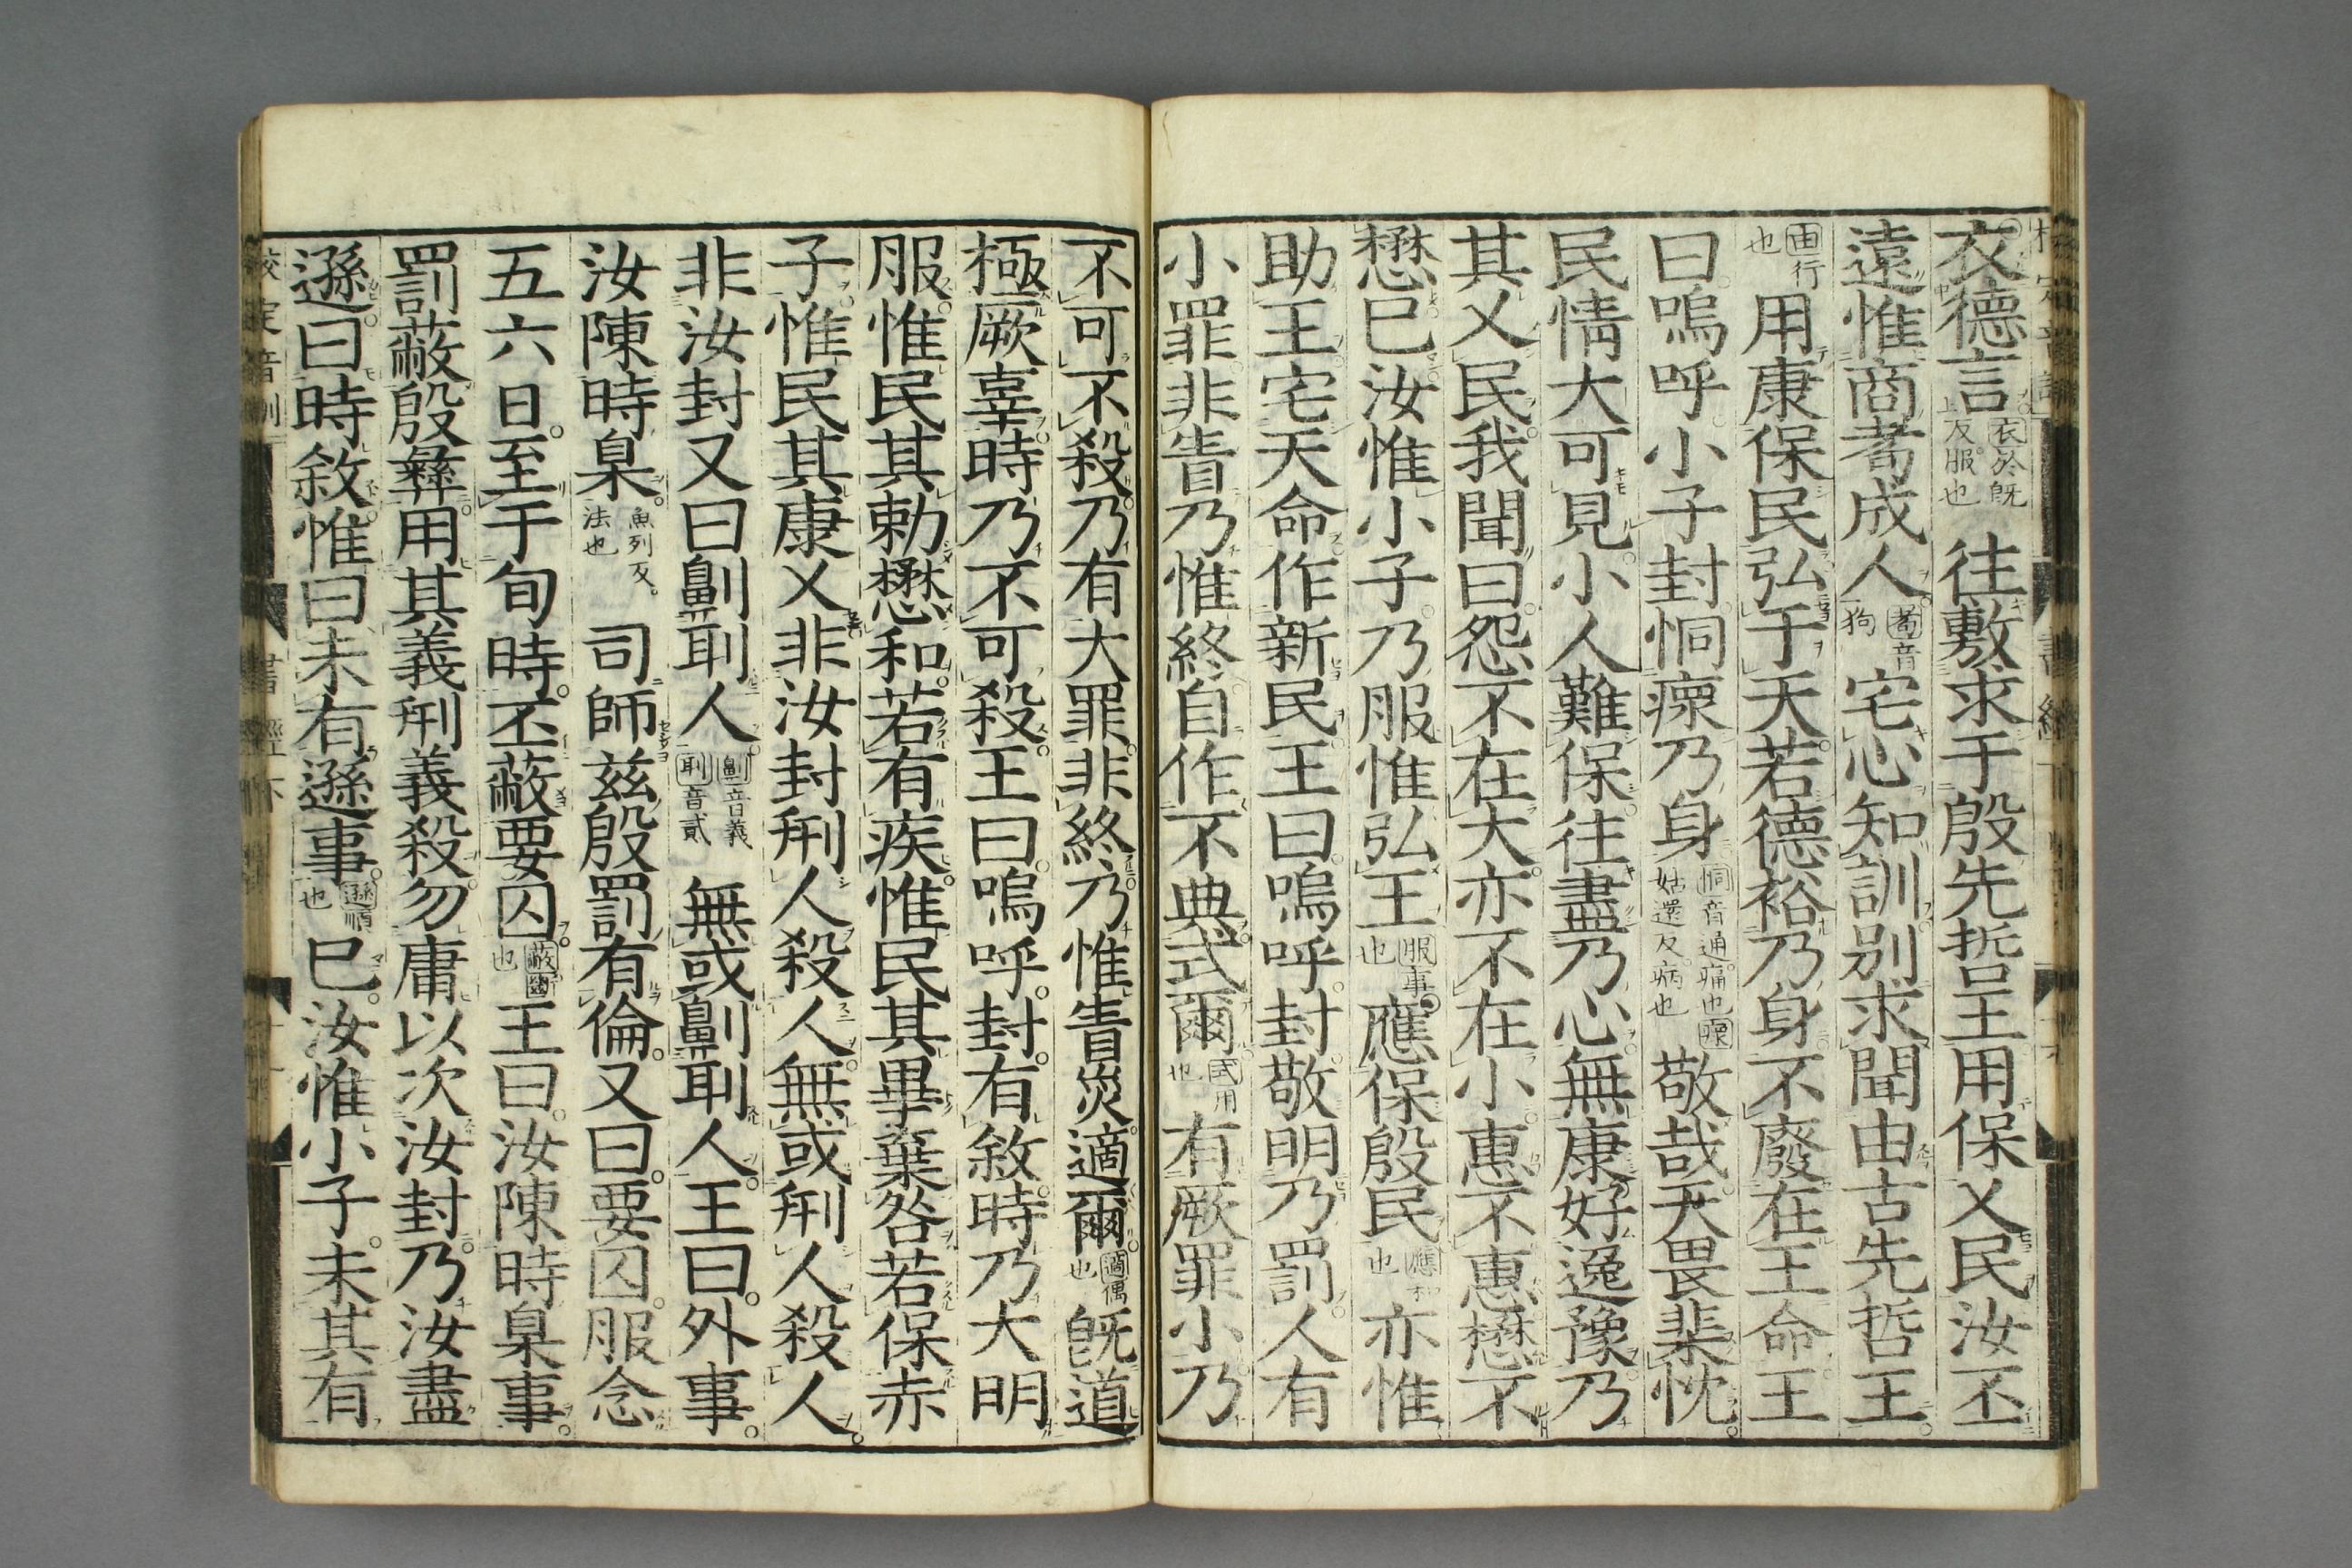 衣德言衣於既上反服也往敷求于殷先哲王用保乂民汝丕
遠惟商耈成人耈音狗宅心知訓別求聞由古先哲王
由行也用康保民弘于天若德裕乃身不廢在王命王
曰嗚呼小子封恫瘝乃身恫音通痛也瘝姑還反病也敬哉天畏棐忱
民情大可見小人難保往盡乃心無康好逸豫乃
其乂民我聞曰怨不在大亦不在小惠不惠懋不
懋巳汝惟小子乃服惟弘王服事也應保殷民應和也亦惟
助王宅天命作新民王曰嗚呼封敬明乃罰人有
小罪非眚乃惟終自作不典式爾式用也有厥罪小乃
不可不殺乃有大罪非終乃惟眚烖適爾適偶也旣道
極厥辜時乃不可殺王曰嗚呼封有敘時乃大明
服惟民其勅懋和若有疾惟民其畢棄咎若保赤
子惟民其康乂非汝封刑人殺人無或刑人殺人
非汝封又曰劓刵人劓音義刵音貳無或劓刵人王曰外事
汝陳時臬魚列反法也司師茲殷罰有倫又曰要囚服念
五六日至于旬時丕蔽要囚蔽斷也王曰汝陳時臬事
罰蔽殷彝用其義刑義殺勿庸以次汝封乃汝盡
遜曰時敘惟曰未有遜事遜順也巳汝惟小子未其有
校定音訓
書經